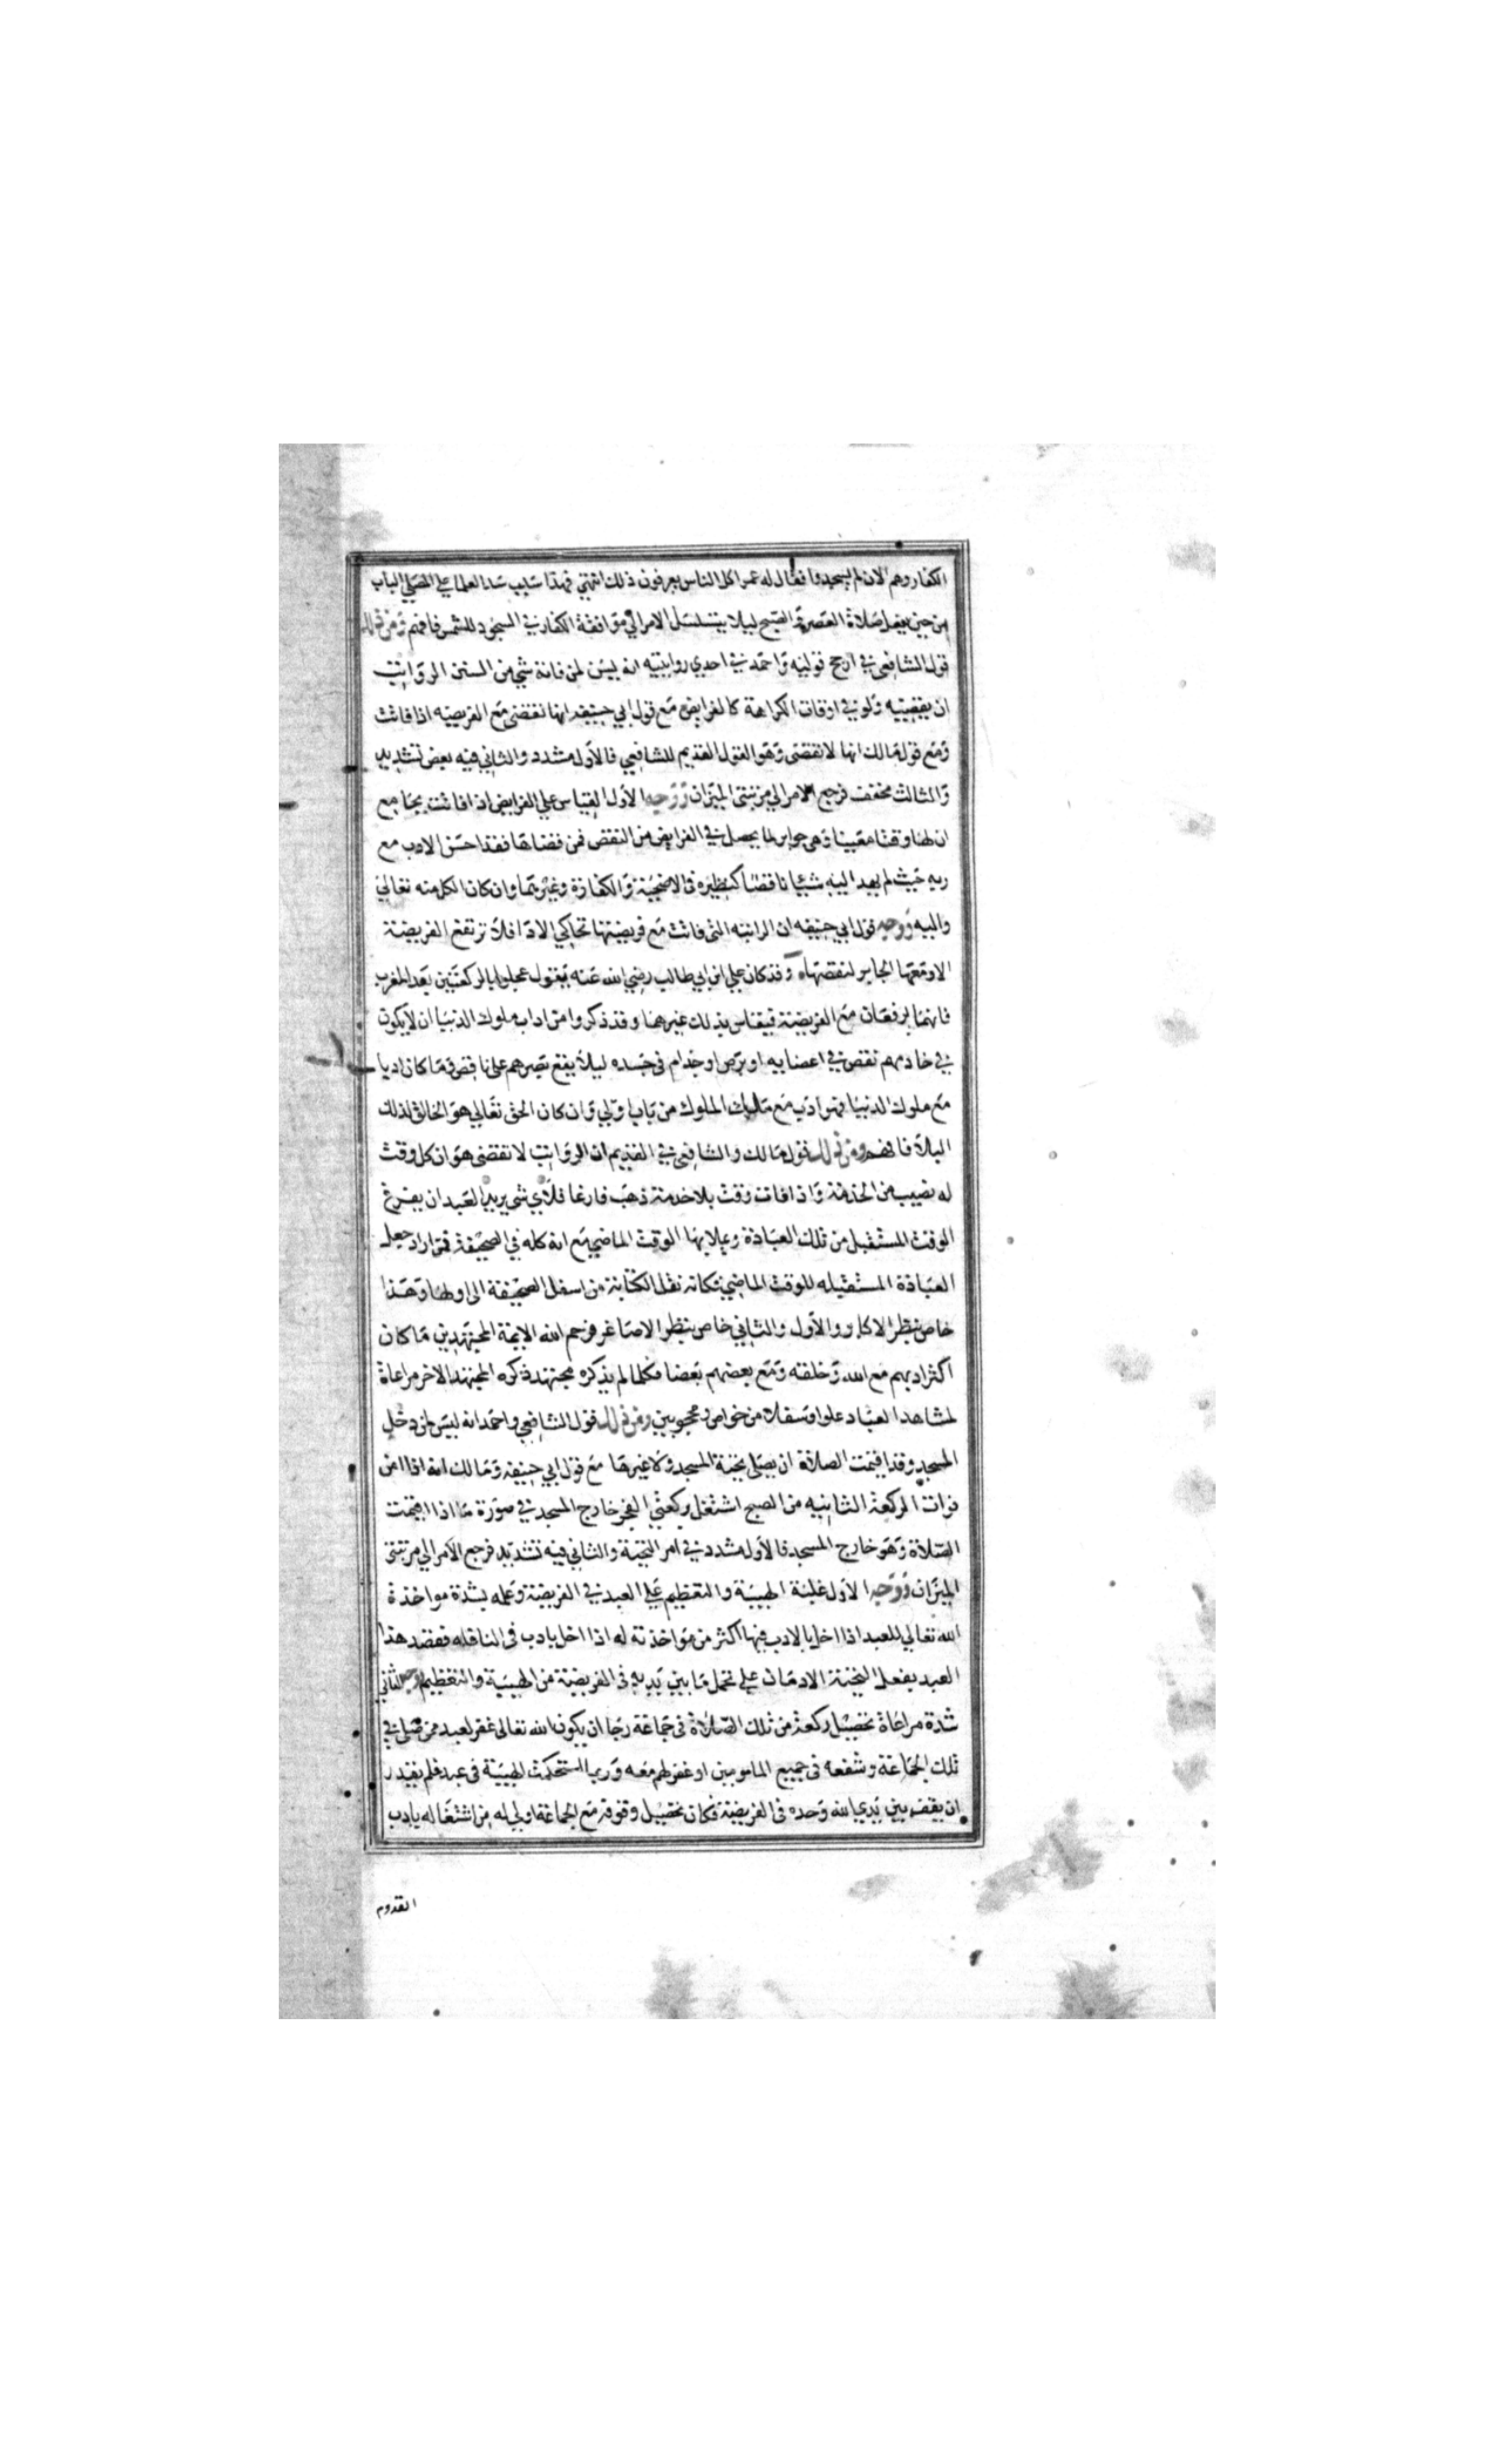 الكفار وهم الان لم يسجدوا فقال له عمر اكل الناس يعرفون ذلك انتهي فهذا سبب سد العلما علي المصلي الباب
من حين يفعل صلاة العصر والصبح ليلا يتسلسل الامر الي موافقة الكفار في السجود للشمس فافهم ومن ذلك
قول الشافعي في ارجح قوليه واحمد في احدي روايتيه انه ليس لمن فاته شي من السنن الرواتب
ان يقضيه ولو في اوقات الكراهة كالفرايض مع قول ابي حنيفه انها تقضي مع الفريضه اذا فاتت
ومع قول مالك انها لا تقضي وهو القول القديم للشافعي فالاول مشدد والثاني فيه بعض تشديد
والثالث مخفف فرجع الامر الي مرتبتي الميزان ووجه الاول القياس علي الفرايض اذا فاتت بجامع
ان لها وقتا معينا وهي جوابر لما يحصل في الفرايض من النقص فمن قضاها فقد احسن الادب مع
ربه حيث لم يهد اليه شيئا ناقصا كنظيره في الاضحية والكفارة وغيرهما وان كان الكل منه تعالي
واليه ووجه قول ابي حنيفه ان الراتبه التي فاتت مع فريضتها تحاكي الادا فلا ترتفع الفريضة
الا ومعها الجابر لنقصها وقد كان علي ابن ابي طالب رضي الله عنه يقول عجلوا بالركعتين بعد المغرب
فانهما يرفعان مع الفريضة فيقاس بذلك غيرهما وقد ذكروا من اداب ملوك الدنيا ان لا يكون
في خادمهم نقص في اعضايه او برص او جذام في جسده ليلا يقع بصرهم علي ناقص وما كان ادبا
مع ملوك الدنيا فهو ادب مع ملك الملوك من باب اولي وان كان الحق تعالي هو الخالق لذلك
البلا فافهم ومن ذلك قول مالك والشافعي في القديم ان الرواتب لا تقضي هو ان كل وقت
له نصيب من الخدمة واذا فات وقت بلا خدمة ذهب فارغا فلاي شي يريد العبد ان يفرغ
الوقت المستقبل من تلك العبادة ويملا بها الوقت الماضي مع انه كله في الصحيفة فمن اراد جعل
العبادة المستقبله للوقت الماضي فكانه نقل الكتابة من اسفل الصحيفة الي اولها وهذا
خاص بنظر الاكابر والاول والثاني خاص بنظر الاصاغر فرحم الله الايمة المجتهدين ما كان
اكثر ادبهم مع الله وخلقه ومع بعضهم بعضا فكلما لم يذكره مجتهد ذكره المجتهد الاخر مراعاة
لمشاهد العباد علوا وسفلا من خواص ومحجوبين ومن ذلك قول الشافعي واحمد انه ليس لمن دخل
المسجد وقد اقيمت الصلاة ان يصلي تحية المسجد ولا غيرها مع قول ابي حنيفه ومالك انه اذا امن
فوات الركعة الثانيه من الصبح اشتغل بركعتي الفجر خارج المسجد في صورة ما اذا اقيمت
الصلاة وهو خارج المسجد فالاول مشدد في امر التحية والثاني فيه تشديد فرجع الامر الي مرتبتي
الميزان ووجه الاول غلبة الهيبة والتعظيم علي العبد في الفريضة وعمله بشدة مواخذة
الله تعالي للعبد اذا اخل بالادب فيها اكثر من مواخذته له اذا اخل بادب في النافله فقصد هذا
العبد بفعل التحية الادمان علي تحمل ما بين يديه في الفريضة من الهيبة والتعظيم ووجه الثاني
شدة مراعاة تحصيل ركعة من تلك الصلاة في جماعة رجا ان يكون الله تعالي غفر لعبد ممن صلي في
تلك الجماعة وشفعه في جميع المامومين او غفر لهم معه وربما استحكمت الهيبة في عبد فلم يقدر
ان يقف بين يدي الله وحده في الفريضة فكان تحصيل وقوفه مع الجماعة اولي له من اشتغاله بادب
القدوم